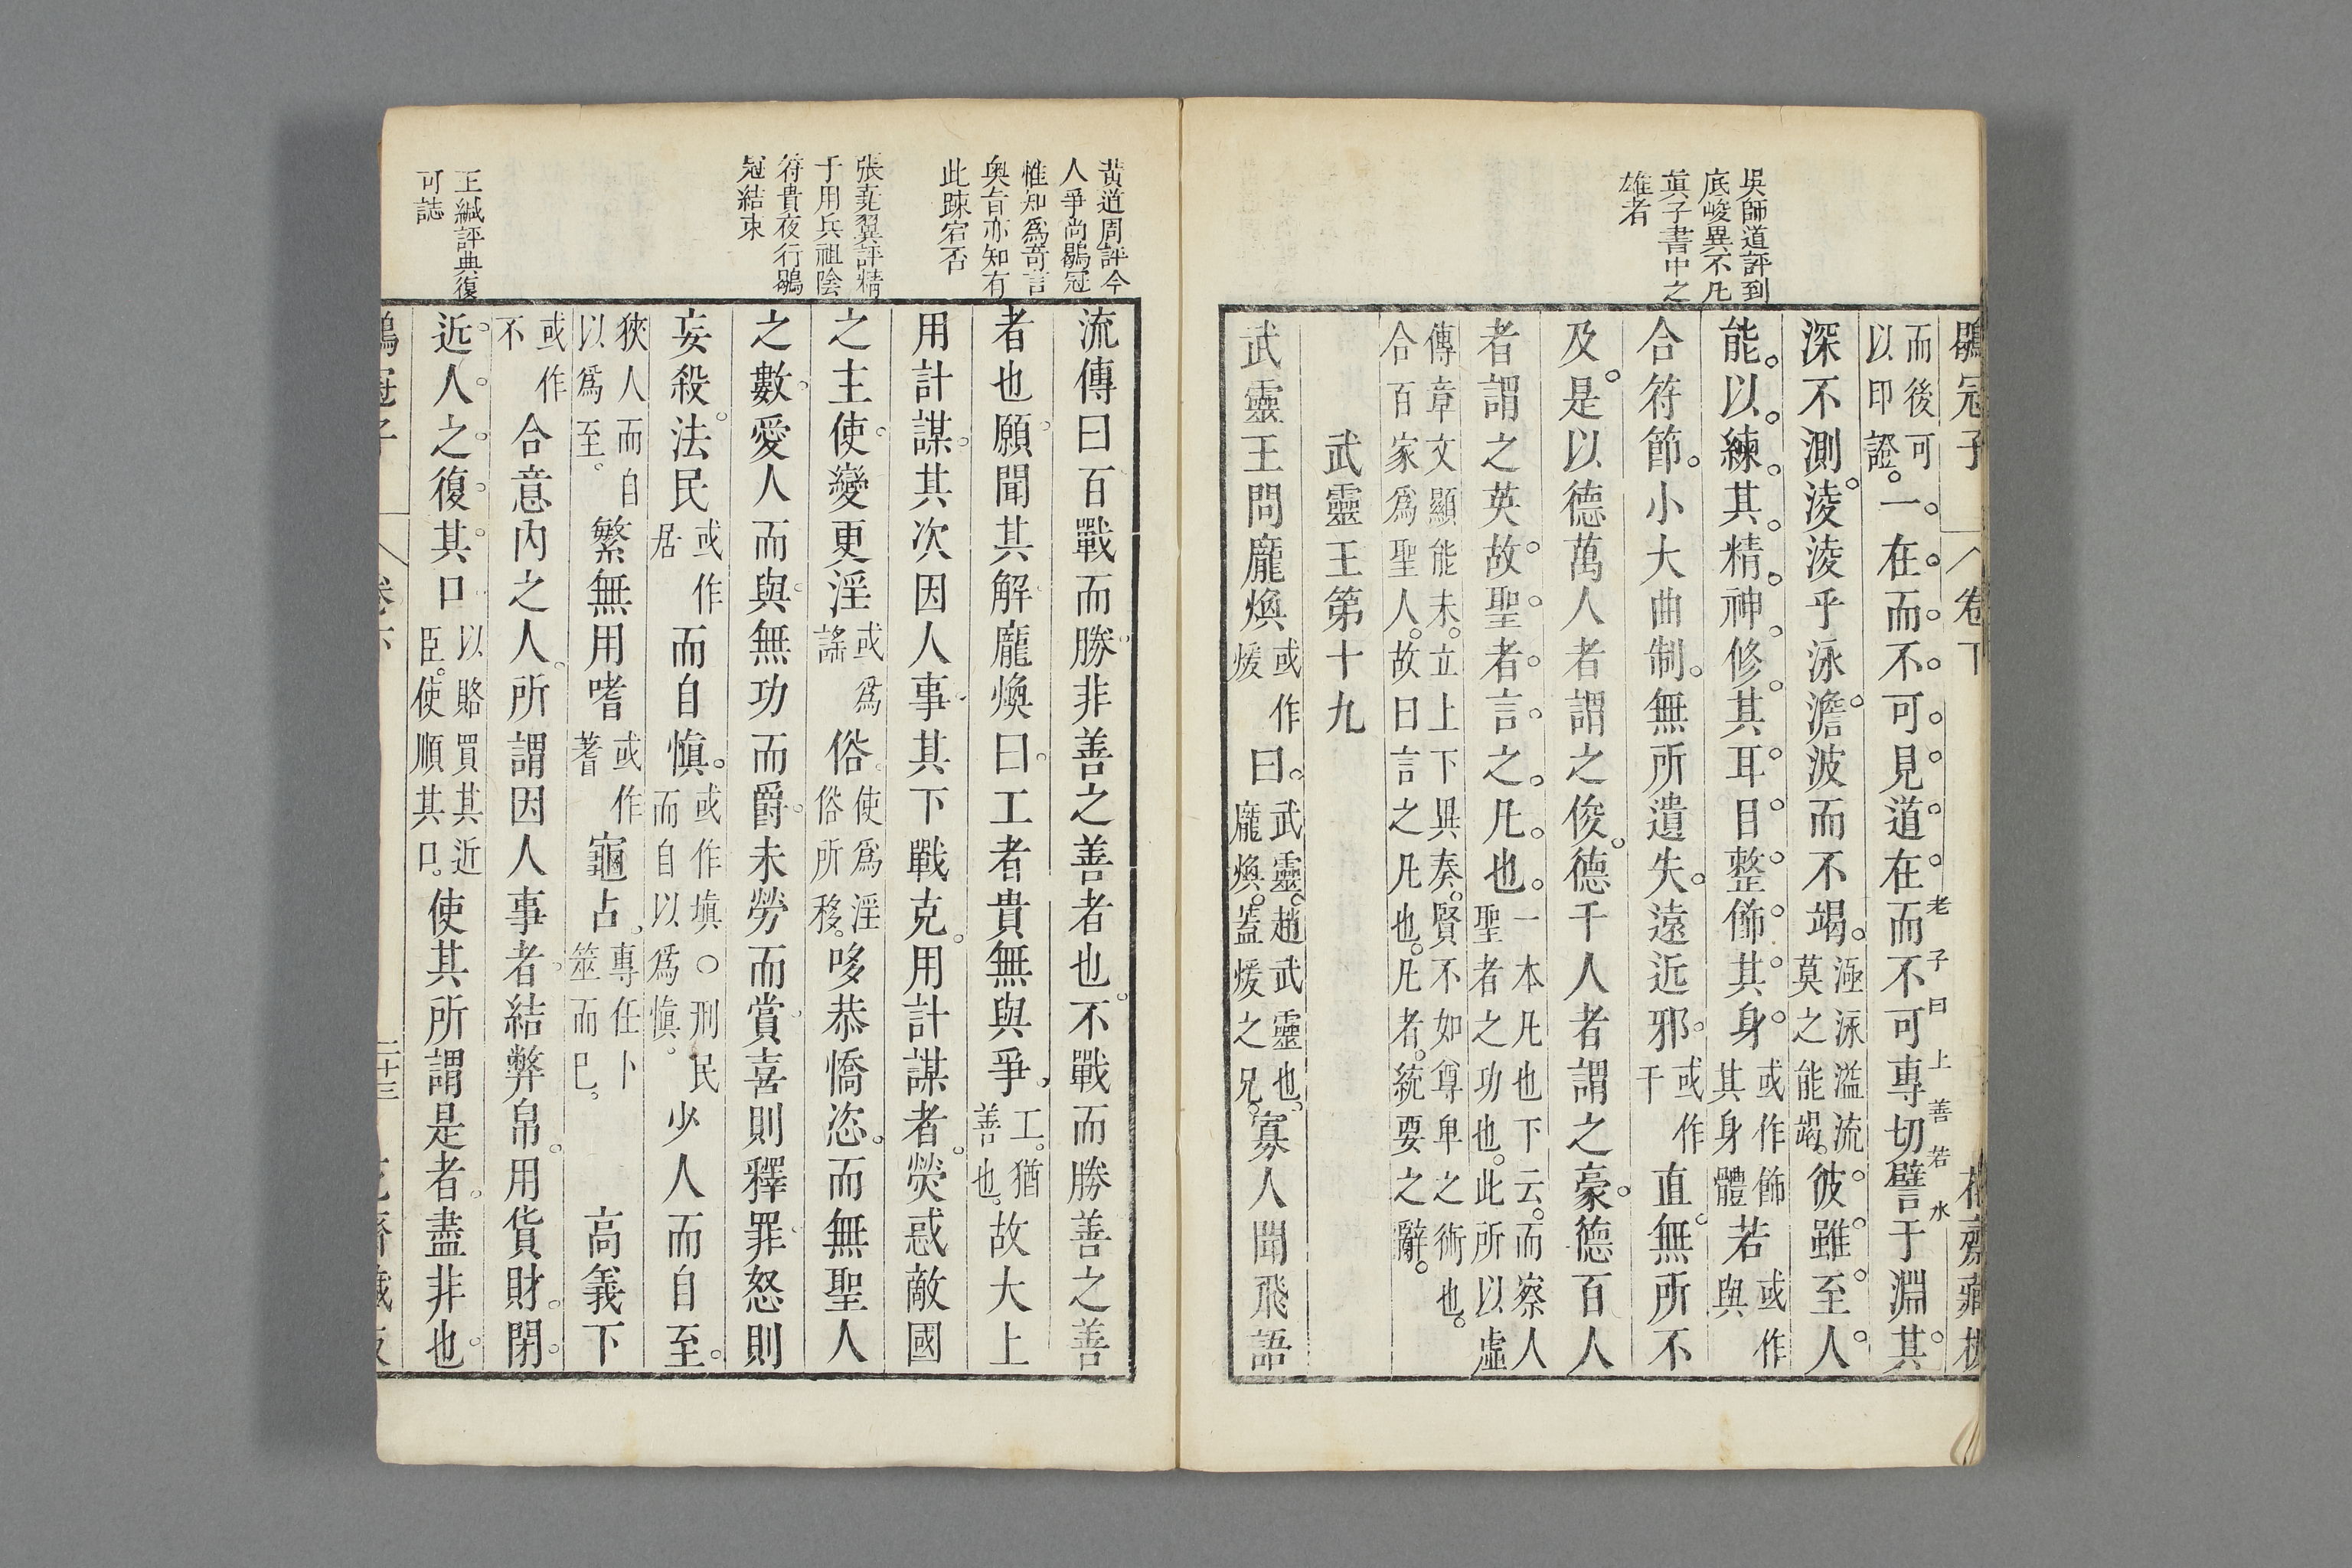 吳師道評到
底峻異不凡
眞子書中之
雄者
鶡冠子 卷下 花齋藏板
而後可
以印證。一。在。而。不。可。見。道。在。而不可專切譬于淵其。
老子曰上善若水
深不測。淩淩乎泳澹。波而不竭。
泳溢流
莫之能竭。彼。雖。至。人。
能。以。練。其。精。神。修。其。耳。目。整。飾。其。身。
或作飾
其身體
若
或作
與
合符節。小大曲制。無所遺失。遠近邪。
或作
干
直。無所不
及。是以德萬人者謂之俊。德千人者謂之豪。德百人
者謂之英。故。聖。者。言。之。凡。也。
一本凡也下云。而察人
聖者之功也。此所以虛
傳章文顯能未。立上下異奏。賢不如尊卑之術也。
合百家爲聖人。故曰言之凡也。凡者。統要之辭。
武靈王第十九
武靈王問龐煥
或作
煖
曰。
武靈。趙武靈也。
龐煥。蓋煖之兄。
寡人聞飛語
黃道周評今
人爭尚鶡冠
惟知爲奇言
奧旨亦知有
此疎宕否
張堯翼評精
于用兵祖陰
符貴夜行鶡
冠結束
王緘評典復
可誌
流傳曰百戰而勝。非善之善者也。不戰而勝善之善
者也。願。聞其解。龐煥曰。工者貴無與爭。
工。猶
善也。
故大上
用計謀。其次因人事。其下戰克。用計謀者。熒惑敵國
之主使。變更淫
或爲
謠
俗。
使爲淫
俗所移。
哆恭憍恣。而無聖人
之數。愛人而與。無功而爵。未勞而賞。喜則釋罪。怒則
妄殺。法民
或作
居
而自愼。
或作塡〇刑民
而自以爲愼。
少人而自至。
狹人而自
以爲至。
繁無用嗜
或作
蓍
龜占。
專任卜
筮而已。
高義下
或作
不
合意內之人。所謂因人事者。結弊帛。用貨財。閉。
近。人。之。復。其。口
以賂買其近
臣。使順其口。
使其所謂是者。盡非也。
鶡冠子 卷下 二十三 花齋藏板